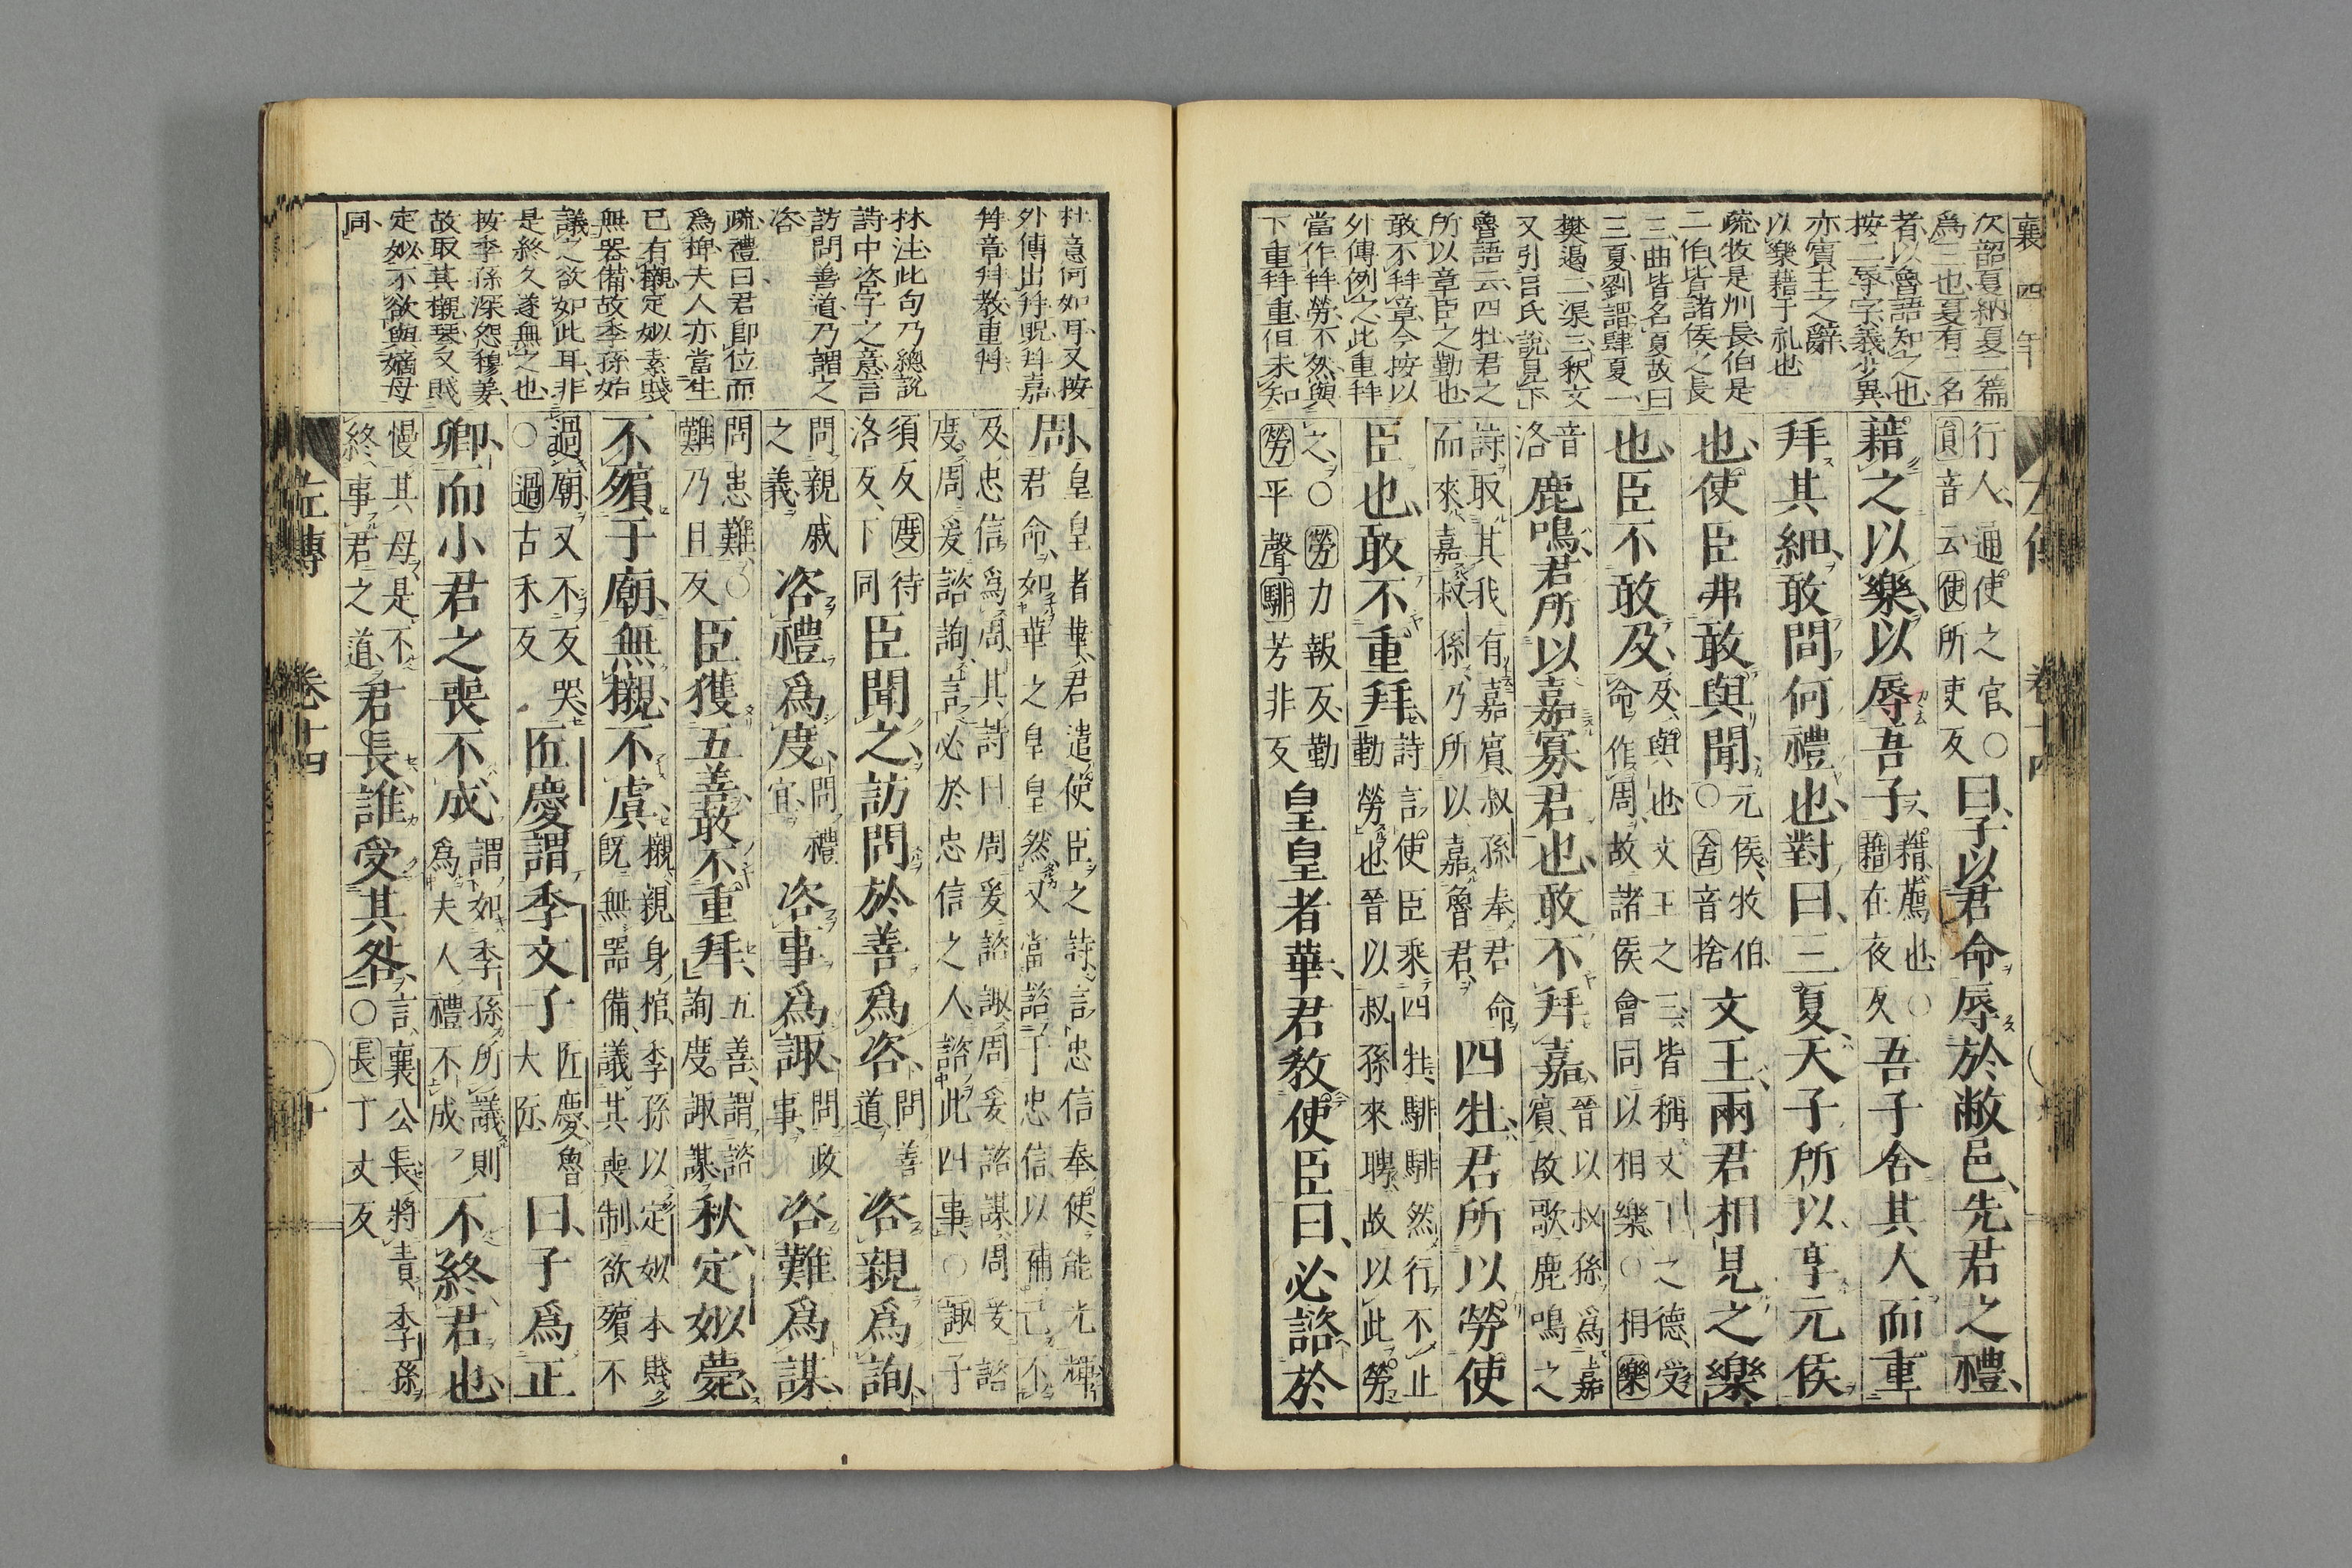 襄四年
次韶夏納夏一篇
爲三也夏有二名
者以魯語知之也
按二辱字義少異
亦賓主之辭
以樂藉于礼也
疏牧是州長伯是
二伯皆諸侯之長
三曲皆名夏故曰
三夏劉謂肆夏一
樊遏二渠三釈文
又引呂氏說見下
魯語云四牡君之
所以章臣之勤也
敢不拜章今按以
外傳例之此重拜
當作拜勞不然與
下重拜重但未知
左傳 卷十四
行人通使之官○員音云使所吏反曰子以君命辱於敝邑先君之禮
藉之以樂以辱吾子藉薦也○藉在夜反吾子舍其人而重
拜其細敢問何禮也對曰三夏天子所以享元侯
也使臣弗敢與聞元侯牧伯○舍音捨文王兩君相見之樂
也臣不敢及及與也文王之三皆稱文王之德受命作周故諸侯會同以相樂○相樂
音洛鹿鳴君所以嘉寡君也敢不拜嘉晉以叔孫爲嘉賓故歌鹿鳴之
詩取其我有嘉賓叔孫奉君命而來嘉叔孫乃所以嘉魯君四牡君所以勞使
臣也敢不重拜詩言使臣乘四牡騑騑然行不止勤勞也晉以叔孫來聘故以此勞
之○勞力報反勤勞平聲騑芳非反皇皇者華君教使臣曰必諮於
杜意何如耳又按
外傳出拜貺拜嘉
拜章拜教重拜
林注此句乃總說
詩中咨字之意言
訪問善道乃謂之
咨
疏禮曰君卽位而
爲椑夫人亦當生
已有櫬定姒素賤
無器備故季孫始
議之欲如此耳非
是終久遂無之也
按季孫深怨穆姜
故取其櫬琴又賤
定姒不欲與嫡母
同
周皇皇者華君遣使臣之詩言忠信奉使能光輝君命如華之皇皇然又當諮于忠信以補己不
及忠信爲周其詩曰周爰諮諏周爰諮謀周爰諮度周爰諮詢言必於忠信之人諮此四事○諏子
須反度待洛反下同臣聞之訪問於善爲咨問善道咨親爲詢
問親戚之義咨禮爲度問禮宜咨事爲諏問政事咨難爲謀
問患難○難乃旦反臣獲五善敢不重拜五善謂諮詢度諏謀秋定姒薨
不殯于廟無櫬不虞櫬親身棺季孫以定姒本賤既無器備議其喪制欲殯不
過廟又不反哭○過古禾反匠慶謂季文子匠慶魯大匠曰子爲正
卿而小君之喪不成謂如季孫所議則爲夫人禮不成不終君也
慢其母是不終事君之道君長誰受其咎言襄公長將責季孫○長丁丈反
左傳 卷十四 十